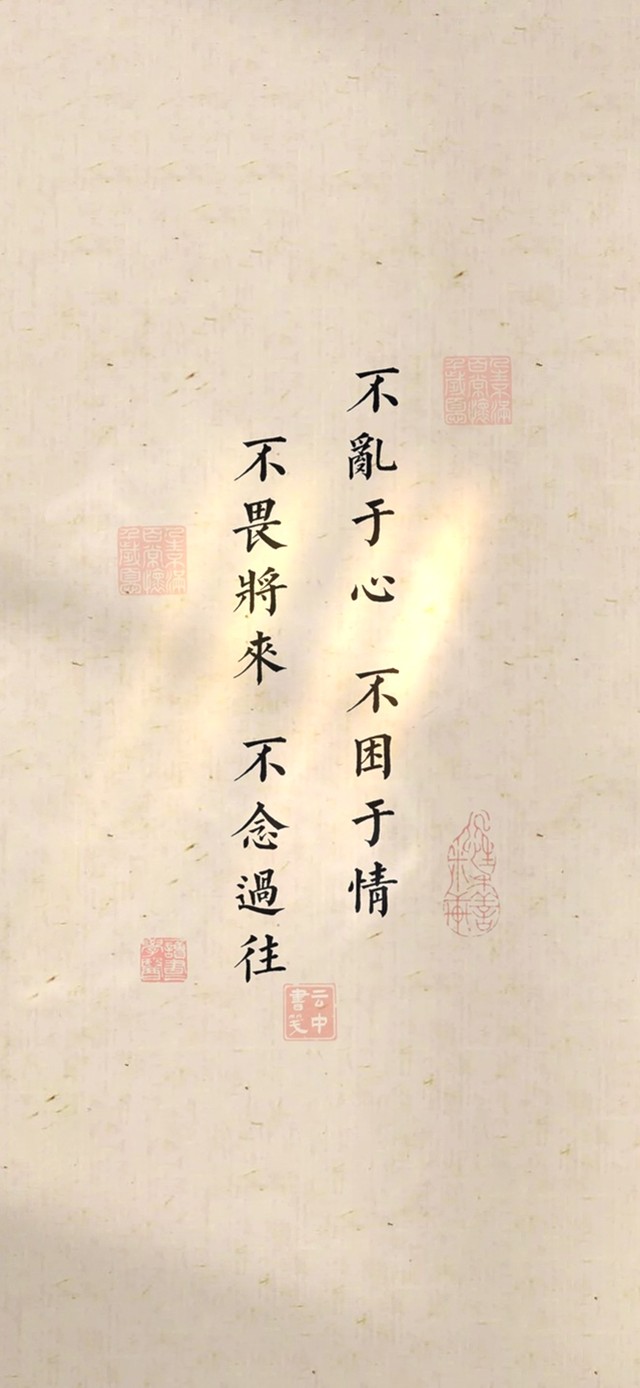 不亂于心 不困于情
不畏將來 不念過往
云中
書笺